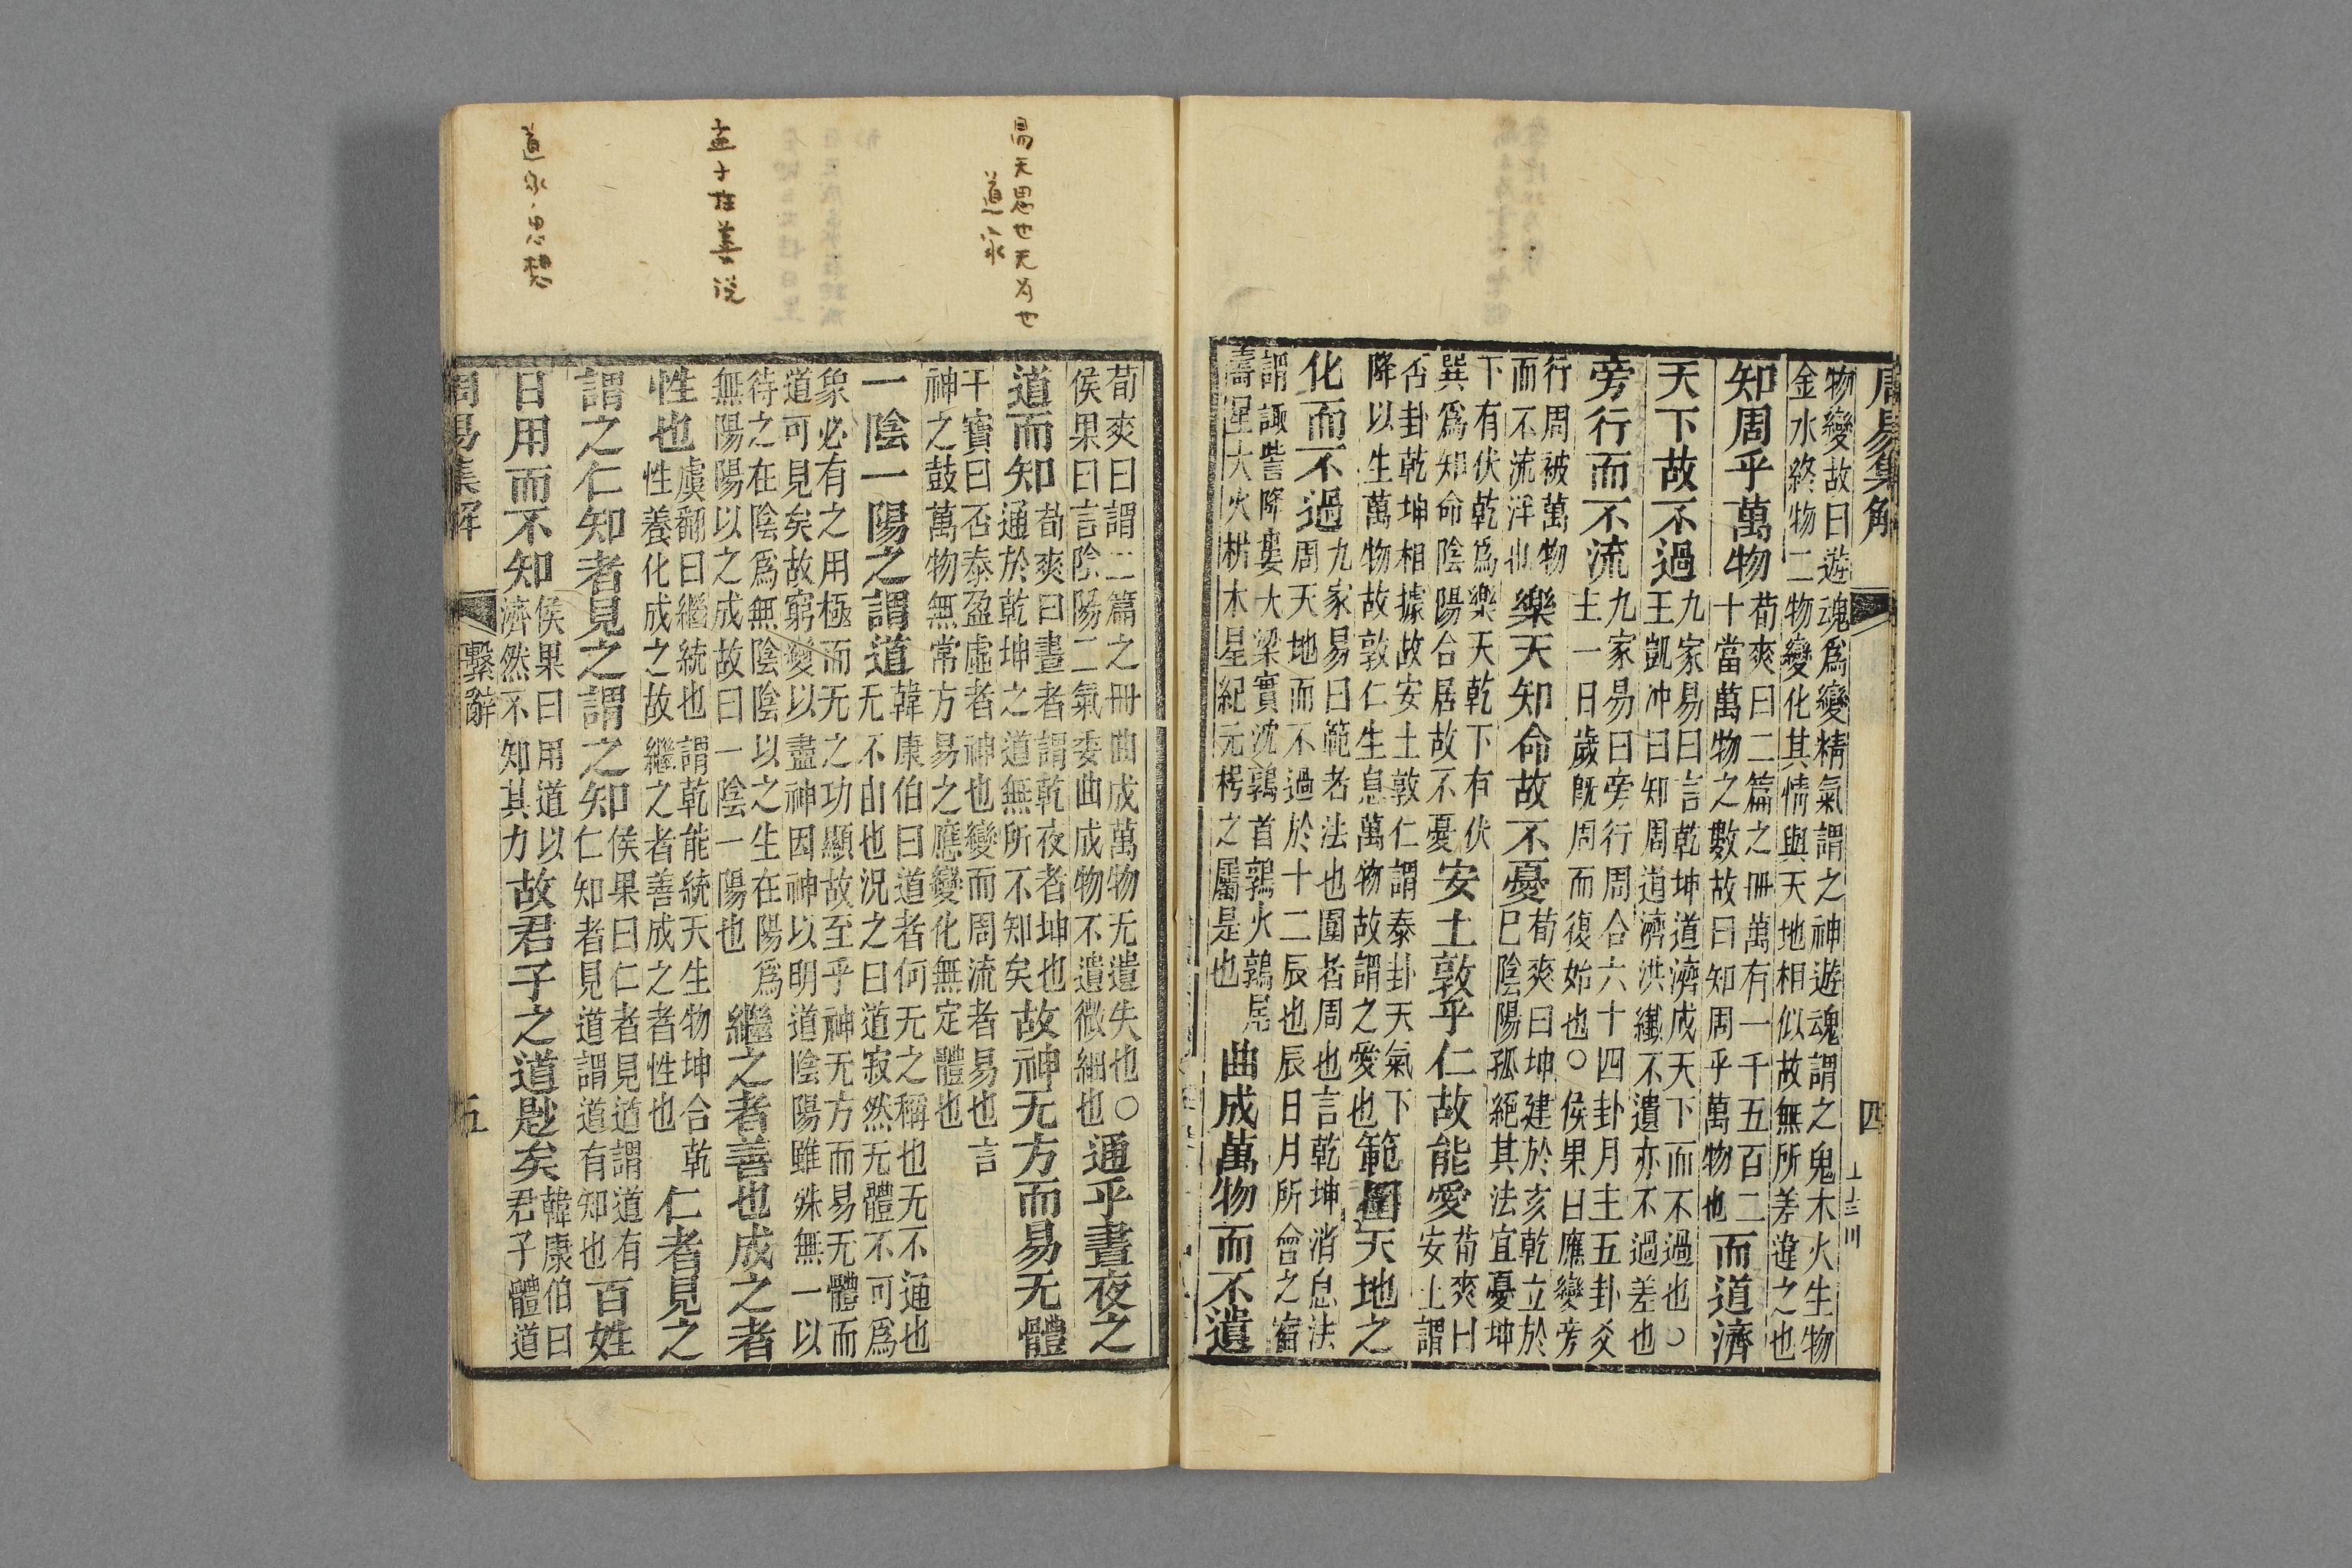 周易集解 四
物變故曰遊魂爲變精氣謂之神遊魂謂之鬼木火生物
金水終物二物變化其情與天地相似故無所差違之也
知周乎萬物荀爽曰二篇之冊萬有一千五百二十當萬物之數故曰知周乎萬物也而道濟
天下故不過九家易曰言乾坤道濟成天下而不過也○王凱冲曰知周道濟洪纖不遺亦不過差也
旁行而不流九家易曰旁行周合六十四卦月主五卦爻土一日歲旣周而復始也○侯果曰應變旁
行周被萬物而不流泮也樂天知命故不憂荀爽曰坤建於亥乾立於巳陰陽孤絕其法宜憂坤
下有伏乾爲樂天乾下有伏巽爲知命陰陽合居故不憂安土敦乎仁故能愛荀爽曰安土謂
否卦乾坤相據故安土敦仁謂泰卦天氣下降以生萬物故敦仁生息萬物故謂之愛也範圍天地之
化而不過九家易曰範者法也圍者周也言乾坤消息法周天地而不過於十二辰也辰日月所會之宿
謂諏訾降婁大梁實沈鶉首鶉火鶉尾壽星大火析木星紀元枵之屬是也曲成萬物而不遺
易无思也无为也
道家
孟子性善说
道家思想
荀爽曰謂二篇之冊曲成萬物无遺失也○侯果曰言陰陽二氣委曲成物不遺微細也通乎晝夜之
道而知荀爽曰晝者謂乾夜者坤也通於乾坤之道無所不知矣故神无方而易无體
干寶曰否泰盈虛者神也變而周流者易也言神之鼓萬物無常方易之應變化無定體也
一陰一陽之謂道韓康伯曰道者何无之稱也无不通也无不由也況之曰道寂然无體不可爲
象必有之用極而无之功顯故至乎神无方而易无體而道可見矣故窮變以盡神因神以明道陰陽雖殊無一以
待之在陰爲無陰陰以之生在陽爲無陽陽以之成故曰一陰一陽也繼之者善也成之者
性也虞翻曰繼統也謂乾能統天生物坤合乾性養化成之故繼之者善成之者性也仁者見之
謂之仁知者見之謂之知侯果曰仁者見道謂道有仁知者見道謂道有知也百姓
日用而不知侯果曰用道以濟然不知其力故君子之道尟矣韓康伯曰君子體道
周易集解 繫辭 五